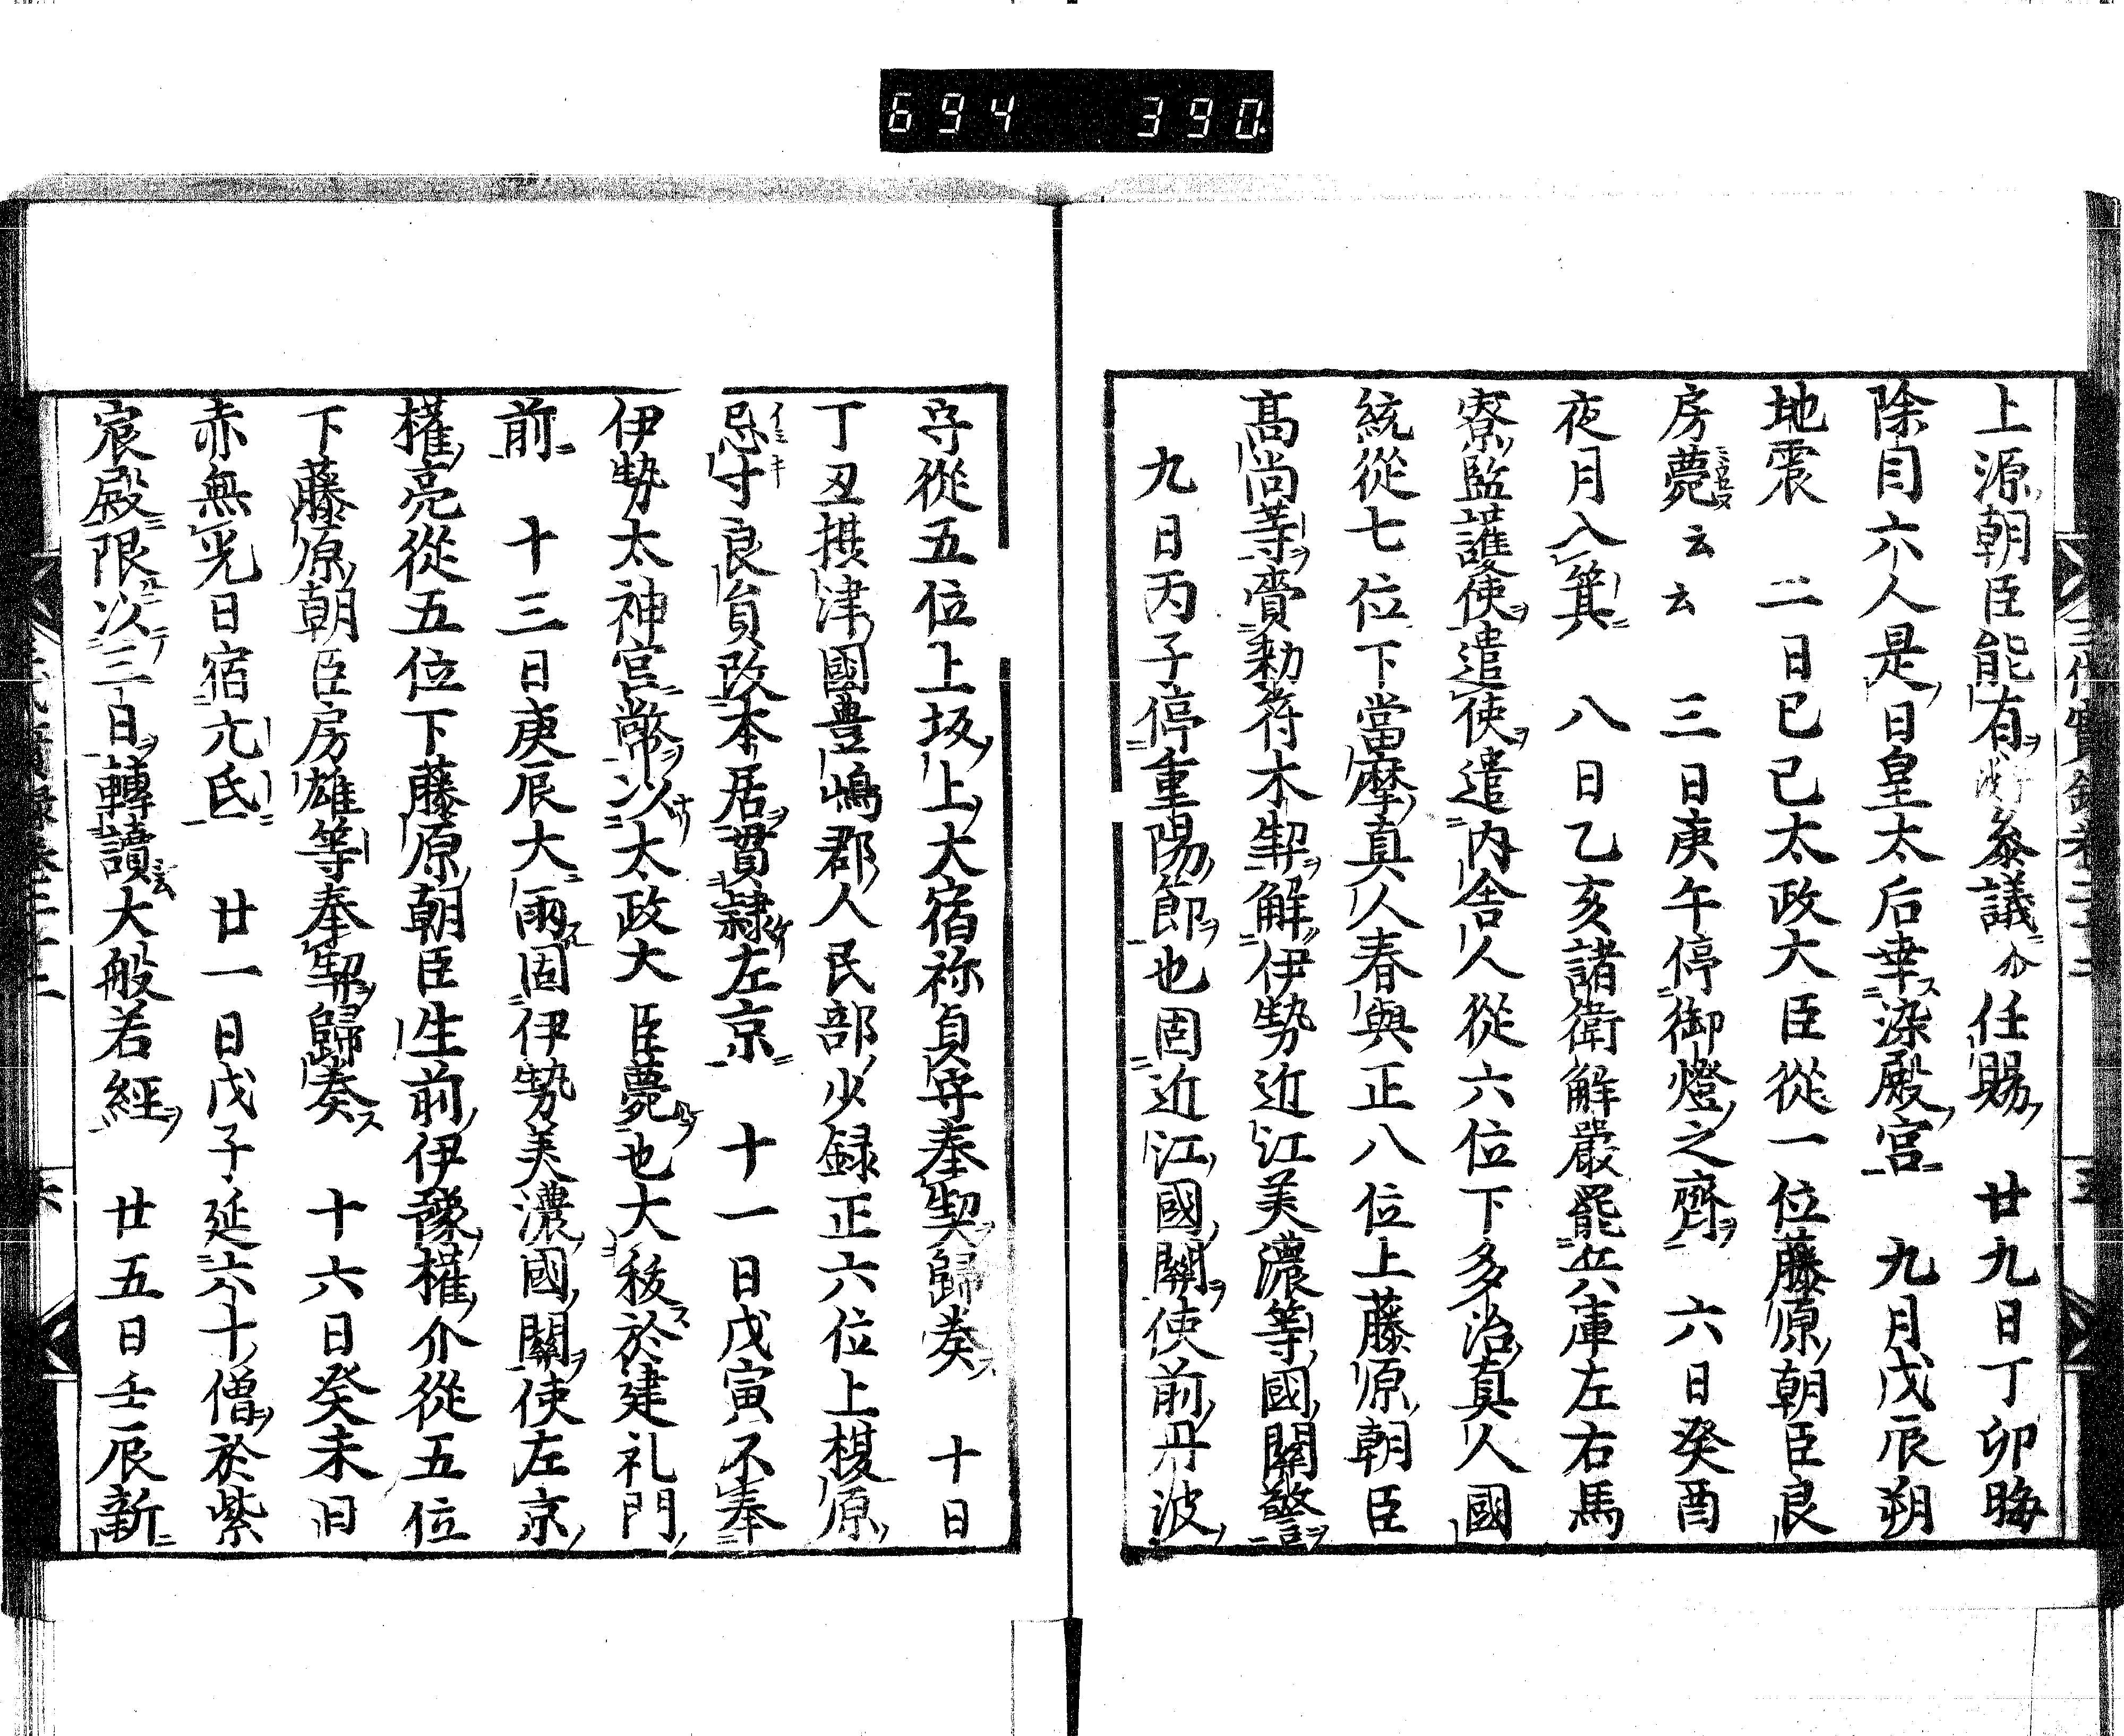 694 390.
上源朝臣能有參議任賜 廿九日丁卯晦
除目六人是日皇太后幸染殿宮 九月戊辰朔
地震 二日己巳太政大臣從一位藤原朝臣良
房薨云云 三日庚午停御燈之齊 六日癸酉
夜月入箕 八日乙亥諸衛解嚴罷兵庫左右馬
寮監護使遣使遣内舍人從六位下多治真人國
統從七位下當摩真人春與正八位上藤原朝臣
高尚等賷勅符木契解伊勢近江美濃等國關警
九日丙子停重陽節也固近江國關使前丹波
守從五位上坂上大宿祢貞守奉契歸奏 十日
丁丑摂津國豊嶋郡人民部少録正六位上榎原
忌寸良貟改本居貫隷左京 十一日戊寅不奉
伊勢太神宮幣以太政大臣薨也大秡於建礼門
前 十三日庚辰大雨固伊勢美濃國關使左京
權亮從五位下藤原朝臣生前伊豫權介從五位
下藤原朝臣房雄等奉契歸奏 十六日癸未日
赤無光日宿亢氐 廿一日戊子延六十僧於紫
宸殿限以三日轉讀大般若經 廿五日壬辰新